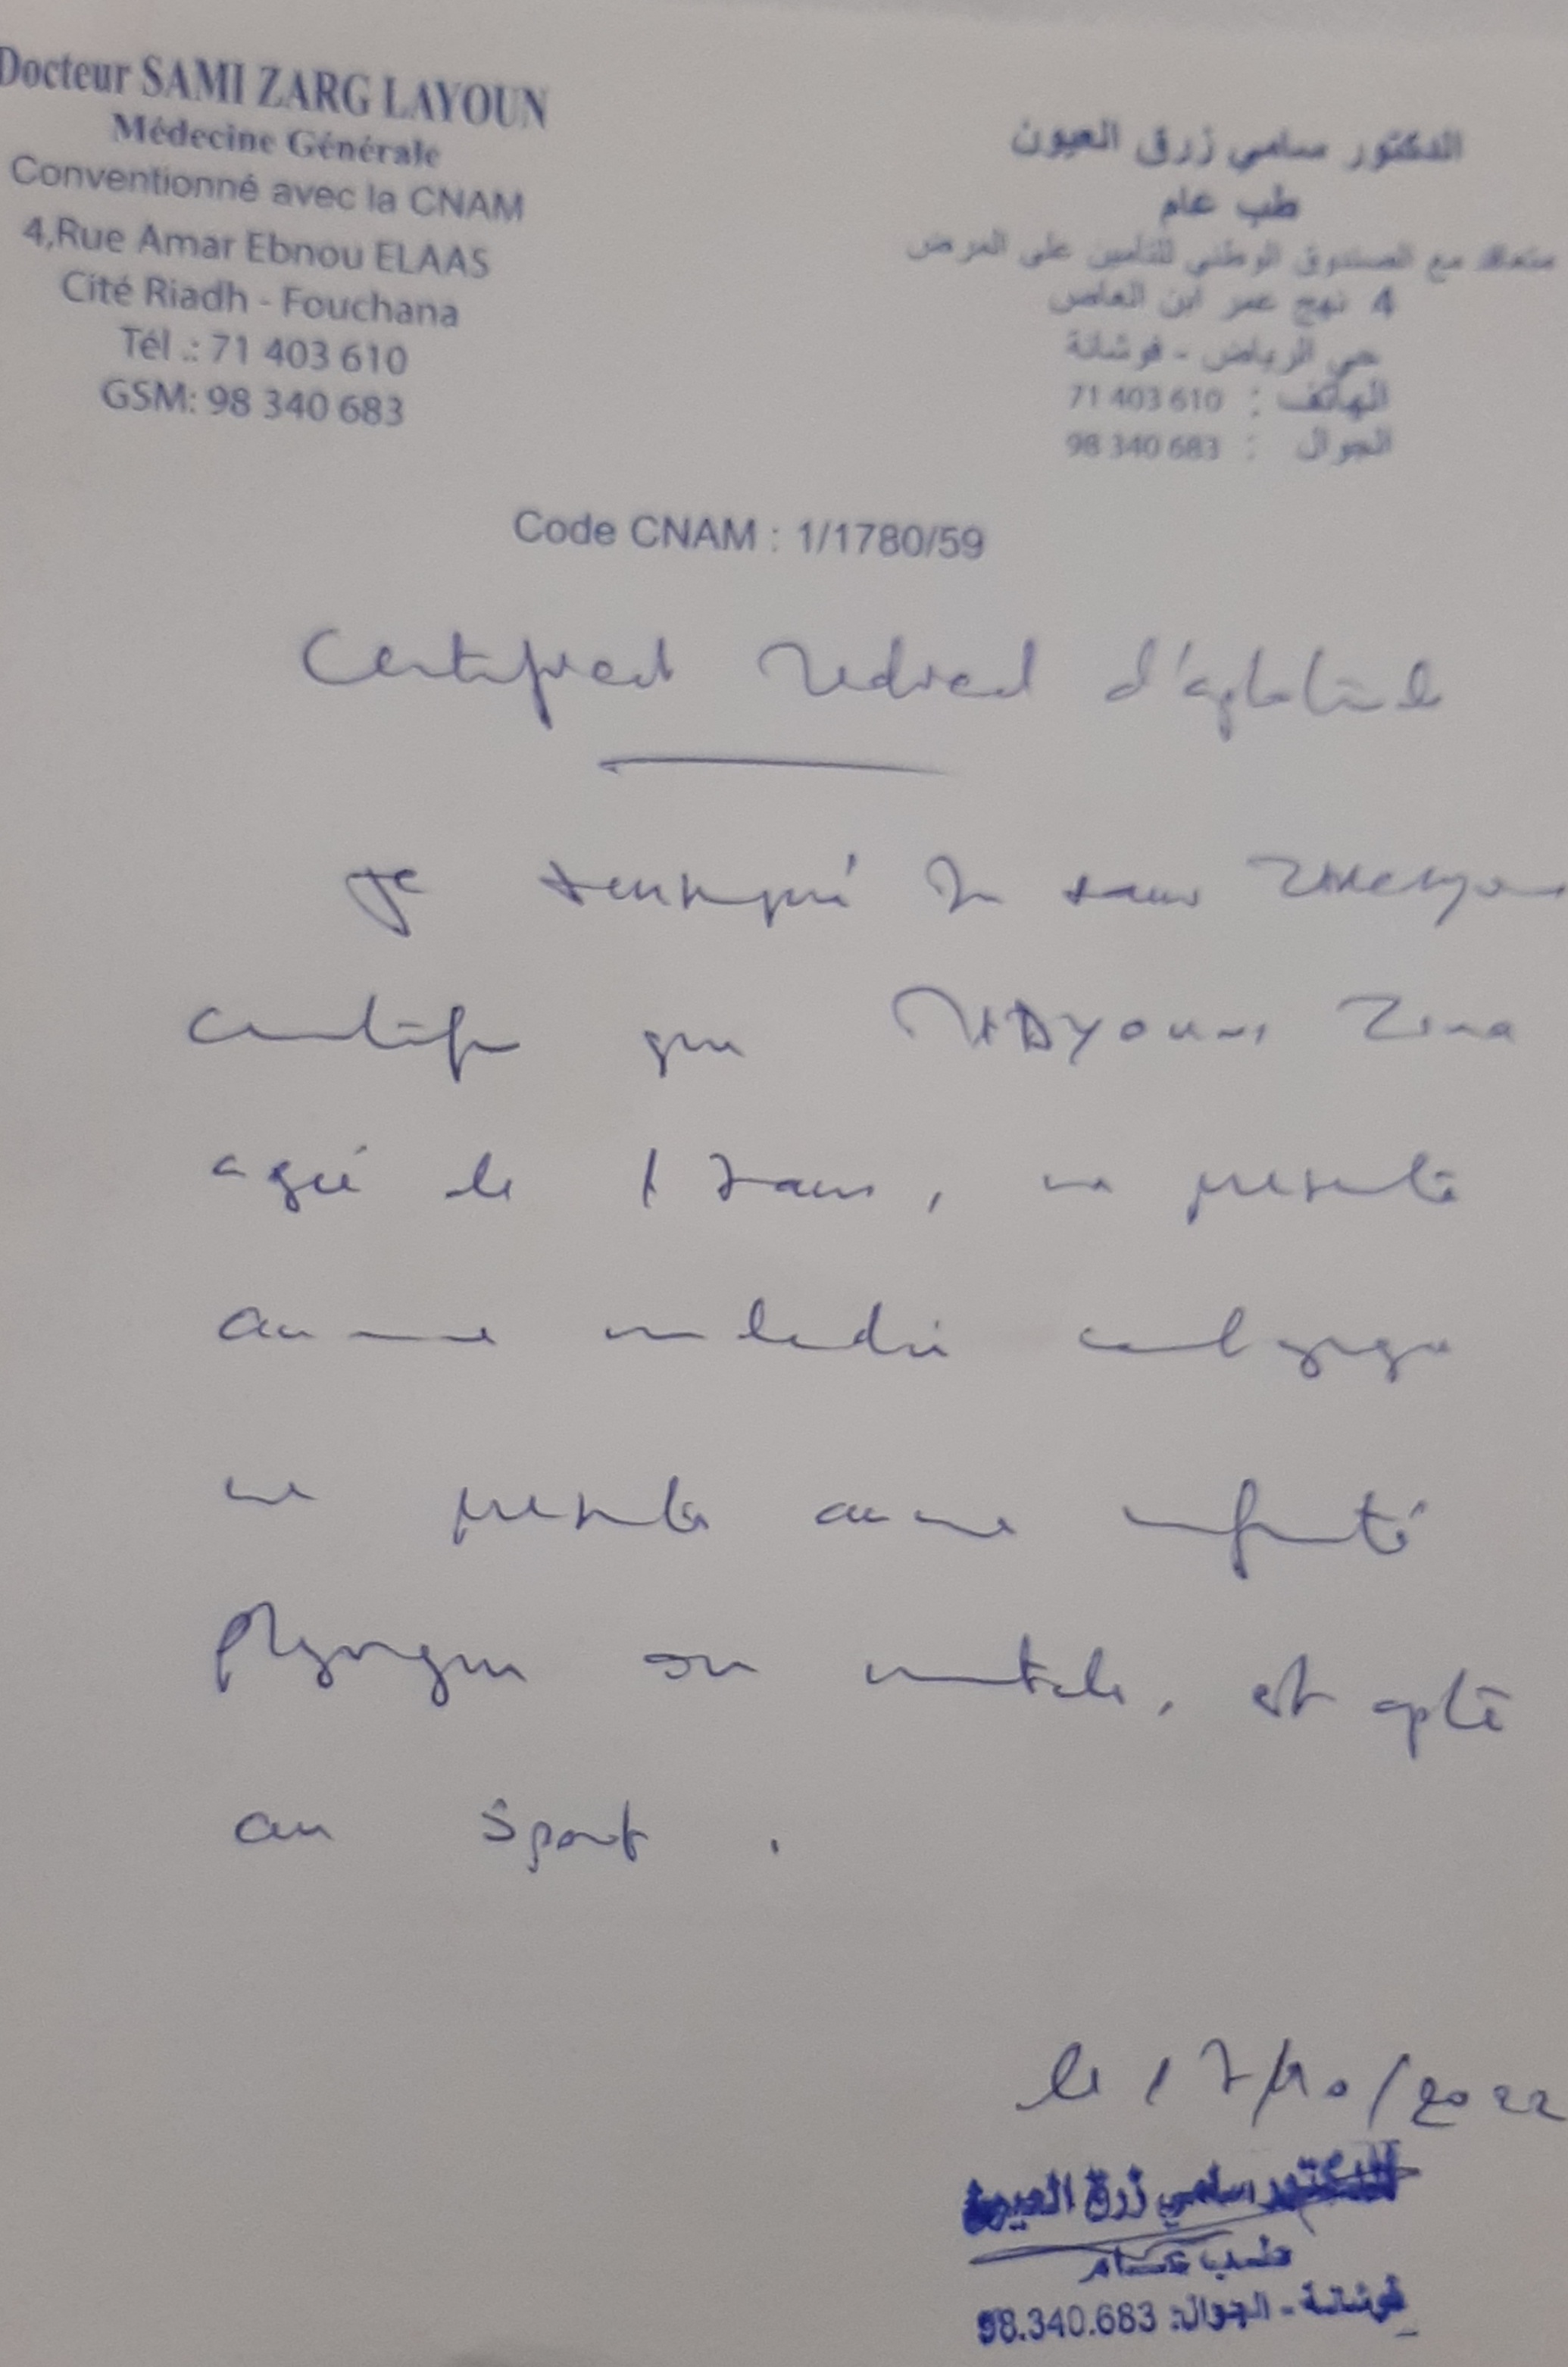 Docteur SAMI ZARG LAYOUN
Médecine Générale
Conventionné avec la CNAM
4,Rue Amar Ebnou ELAAS
Cité Riadh - Fouchana
Tél .: 71 403 610
GSM: 98 340 683
الدكتور سامي زرق العيون
طب عام
متعاقد مع الصندوق الوطني للتأمين على المرض
4 نهج عمر ابن العاص
حي الرياض - فوشانة
الهاتف : 71 403 610
الجوال : 98 340 683
Code CNAM : 1/1780/59
Certificat Médical d'aptitude
Je soussigné Dr Sami
certifie que Zina
agée de 17 ans, ne présente
aucune maladie contagieuse
ne présente aucune infirmité
physique ou mentale, est apte
au Sport .
le 17/10/2022
الدكتور سامي زرق العيون
طب عام
فوشانة - الجوال: 98.340.683